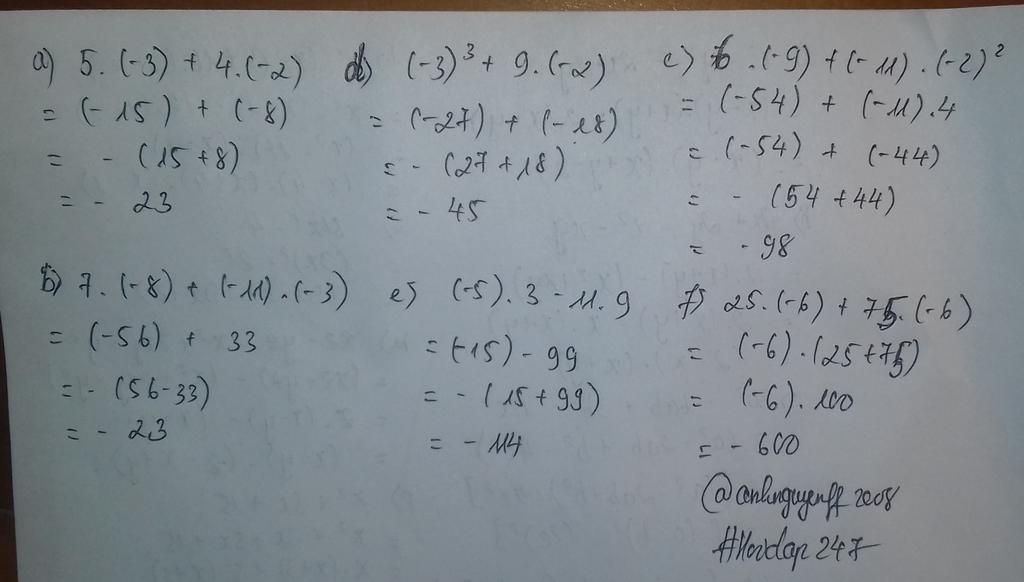 a) 5.(-3) + 4.(-2)
= (-15) + (-8)
= - (15+8)
= - 23
d) (-3)³ + 9.(-2)
= (-27) + (-18)
= - (27+18)
= - 45
c) 6.(-9) + (-11).(-2)²
= (-54) + (-11).4
= (-54) + (-44)
= - (54+44)
= - 98
b) 7.(-8) + (-11).(-3)
= (-56) + 33
= - (56-33)
= - 23
e) (-5).3 - 11.9
= (-15) - 99
= - (15+99)
= - 114
f) 25.(-6) + 75.(-6)
= (-6).(25+75)
= (-6).100
= - 600
@anhnguyenff2008
#Hoidap247